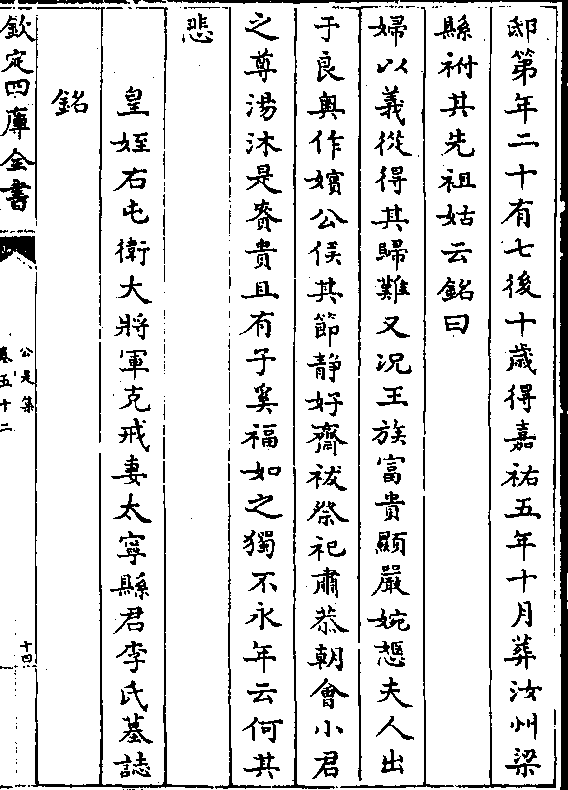 邸第年二十有七後十歲得嘉祐五年十月葬汝州梁
縣祔其先祖姑云銘曰
婦以義從得其歸難又況王族富貴顯嚴婉㦤夫人出
于良奥作嬪公侯其節靜好齊祓祭祀肅恭朝會小君
之尊湯沐是賚貴且有子奚福如之獨不永年云何其
悲
皇姪右屯衛大將軍克戒妻太寧縣君李氏墓誌
銘
欽定四庫全書
公是集
卷五十二
十四